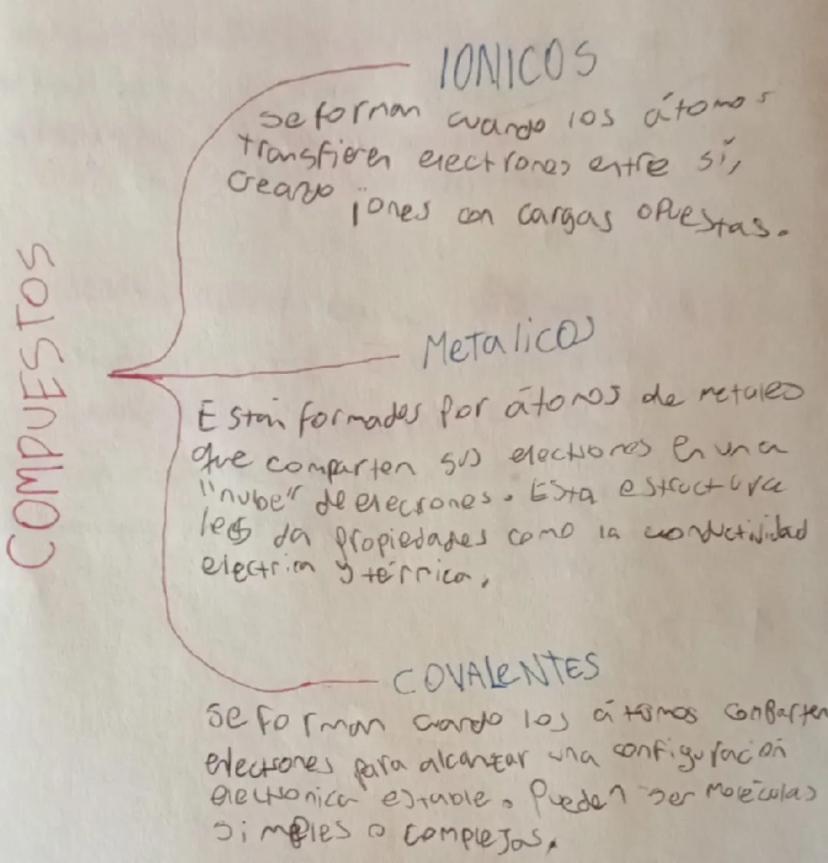 COMPUESTOS
IONICOS
se forman cuando los átomos
transfieren electrones entre sí,
creazo iones con cargas opuestas.
Metalicos
Están formados por átomos de metales
que comparten sus electrones en una
"nube" de elecrones. Esta estructura
les da propiedades como la conductividad
electrica y térmica.
COVALENTES
se forman cuando los átomos comparten
electrones para alcanzar una configuración
electronica estable. Pueden ser moléculas
simples o complejas.